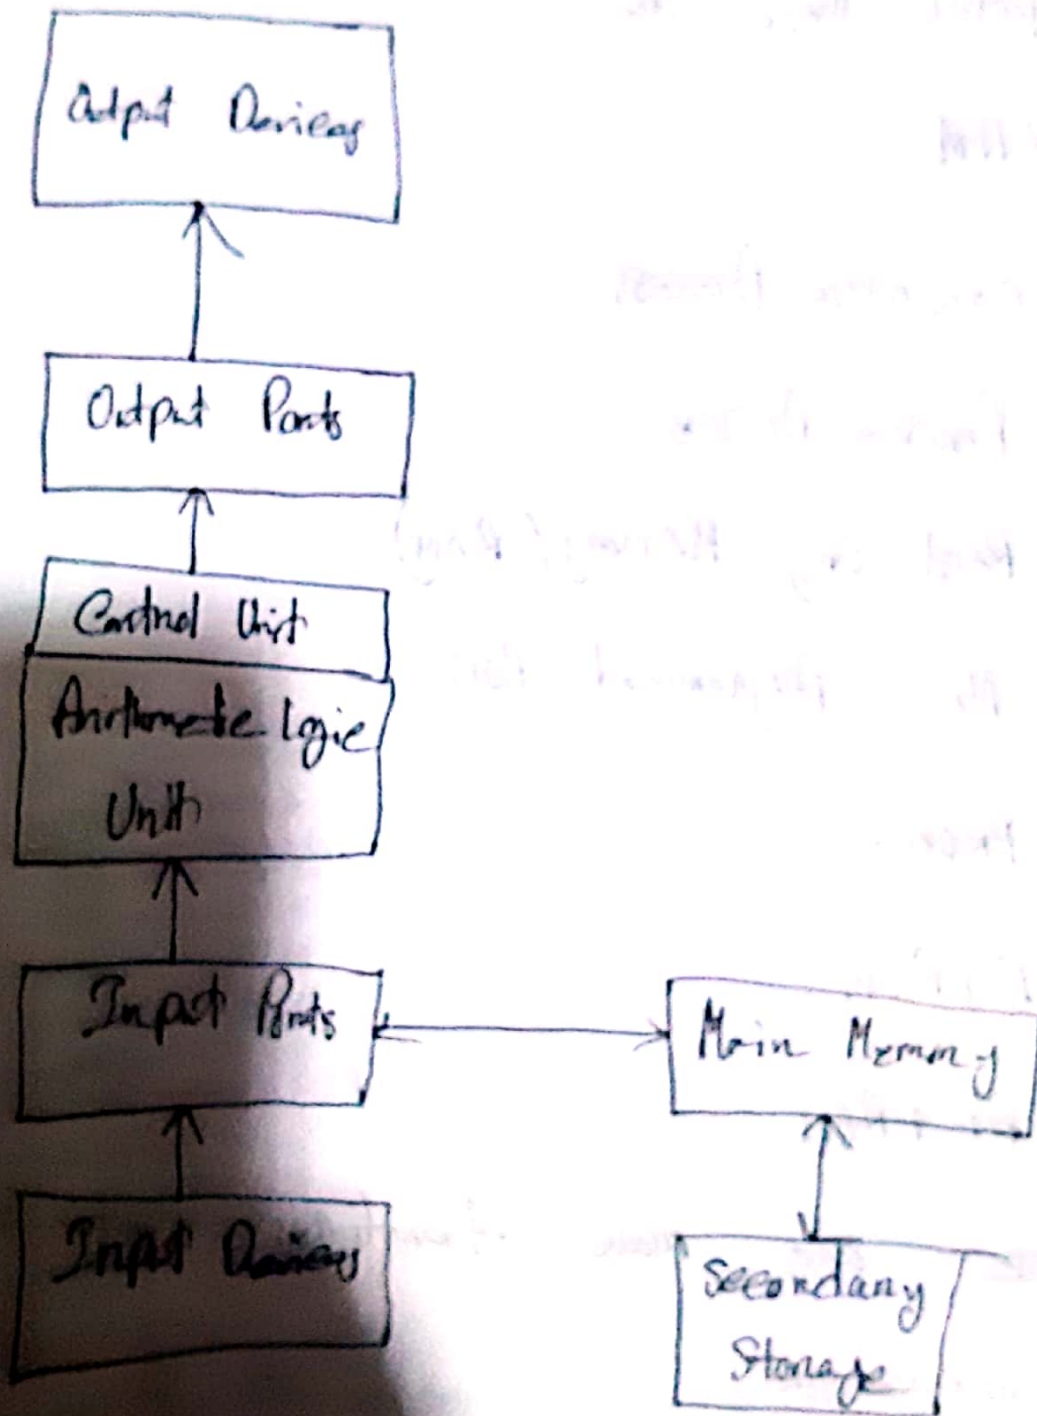 Output Devices
Output Ports
Control Unit
Arithmetic Logic
Unit
Input Ports
Main Memory
Input Devices
Secondary
Storage